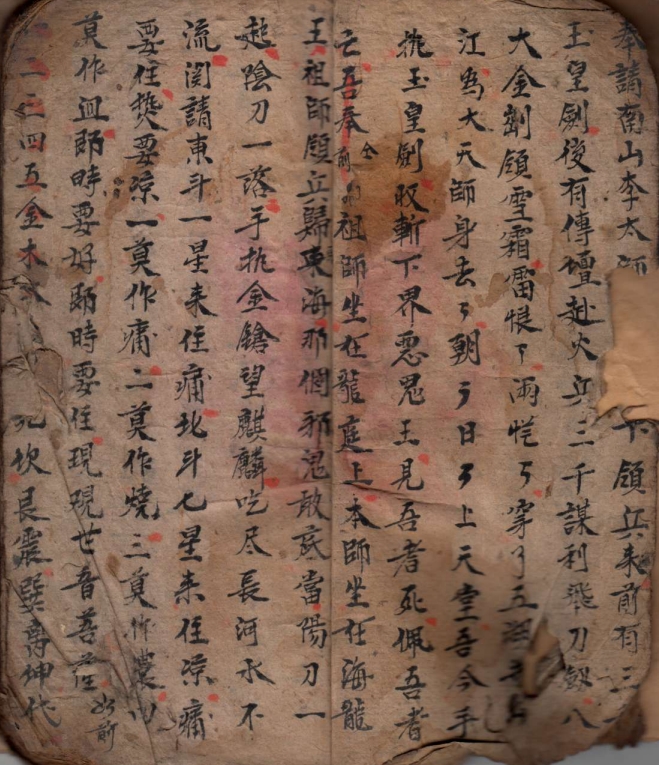 奉請南山李太師 下領兵来前有三
玉皇劍後有傳壇赴火兵三千謀利飛刀劔八
大金劑領雪霜雷恨了雨恾了穿了五
江爲大天師身去了朝了日了上天堂吾今手
执玉皇劍収斬下界惡鬼王見吾者死佩吾者
亡吾奉 祖師坐在龍庭上本師坐在海龍
王祖師領兵歸東海那個邪鬼敢底當陽刀一
起陰刀一落手执金鎗望麒麟吃尽長河水不
流関請東斗一星来住痛北斗七星来住凉痛
要住㷊要凉一莫作痛二莫作燒三莫作農四
莫作血即時要好即時要住現現世音菩薩
一二三四五金木水 兑坎艮震巽离坤代